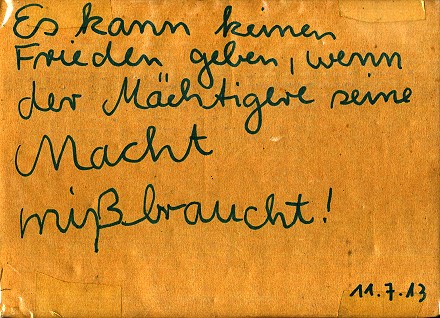 Es kann keinen
Frieden geben, wenn
der Mächtigere seine
Macht
mißbraucht!
11.7.13